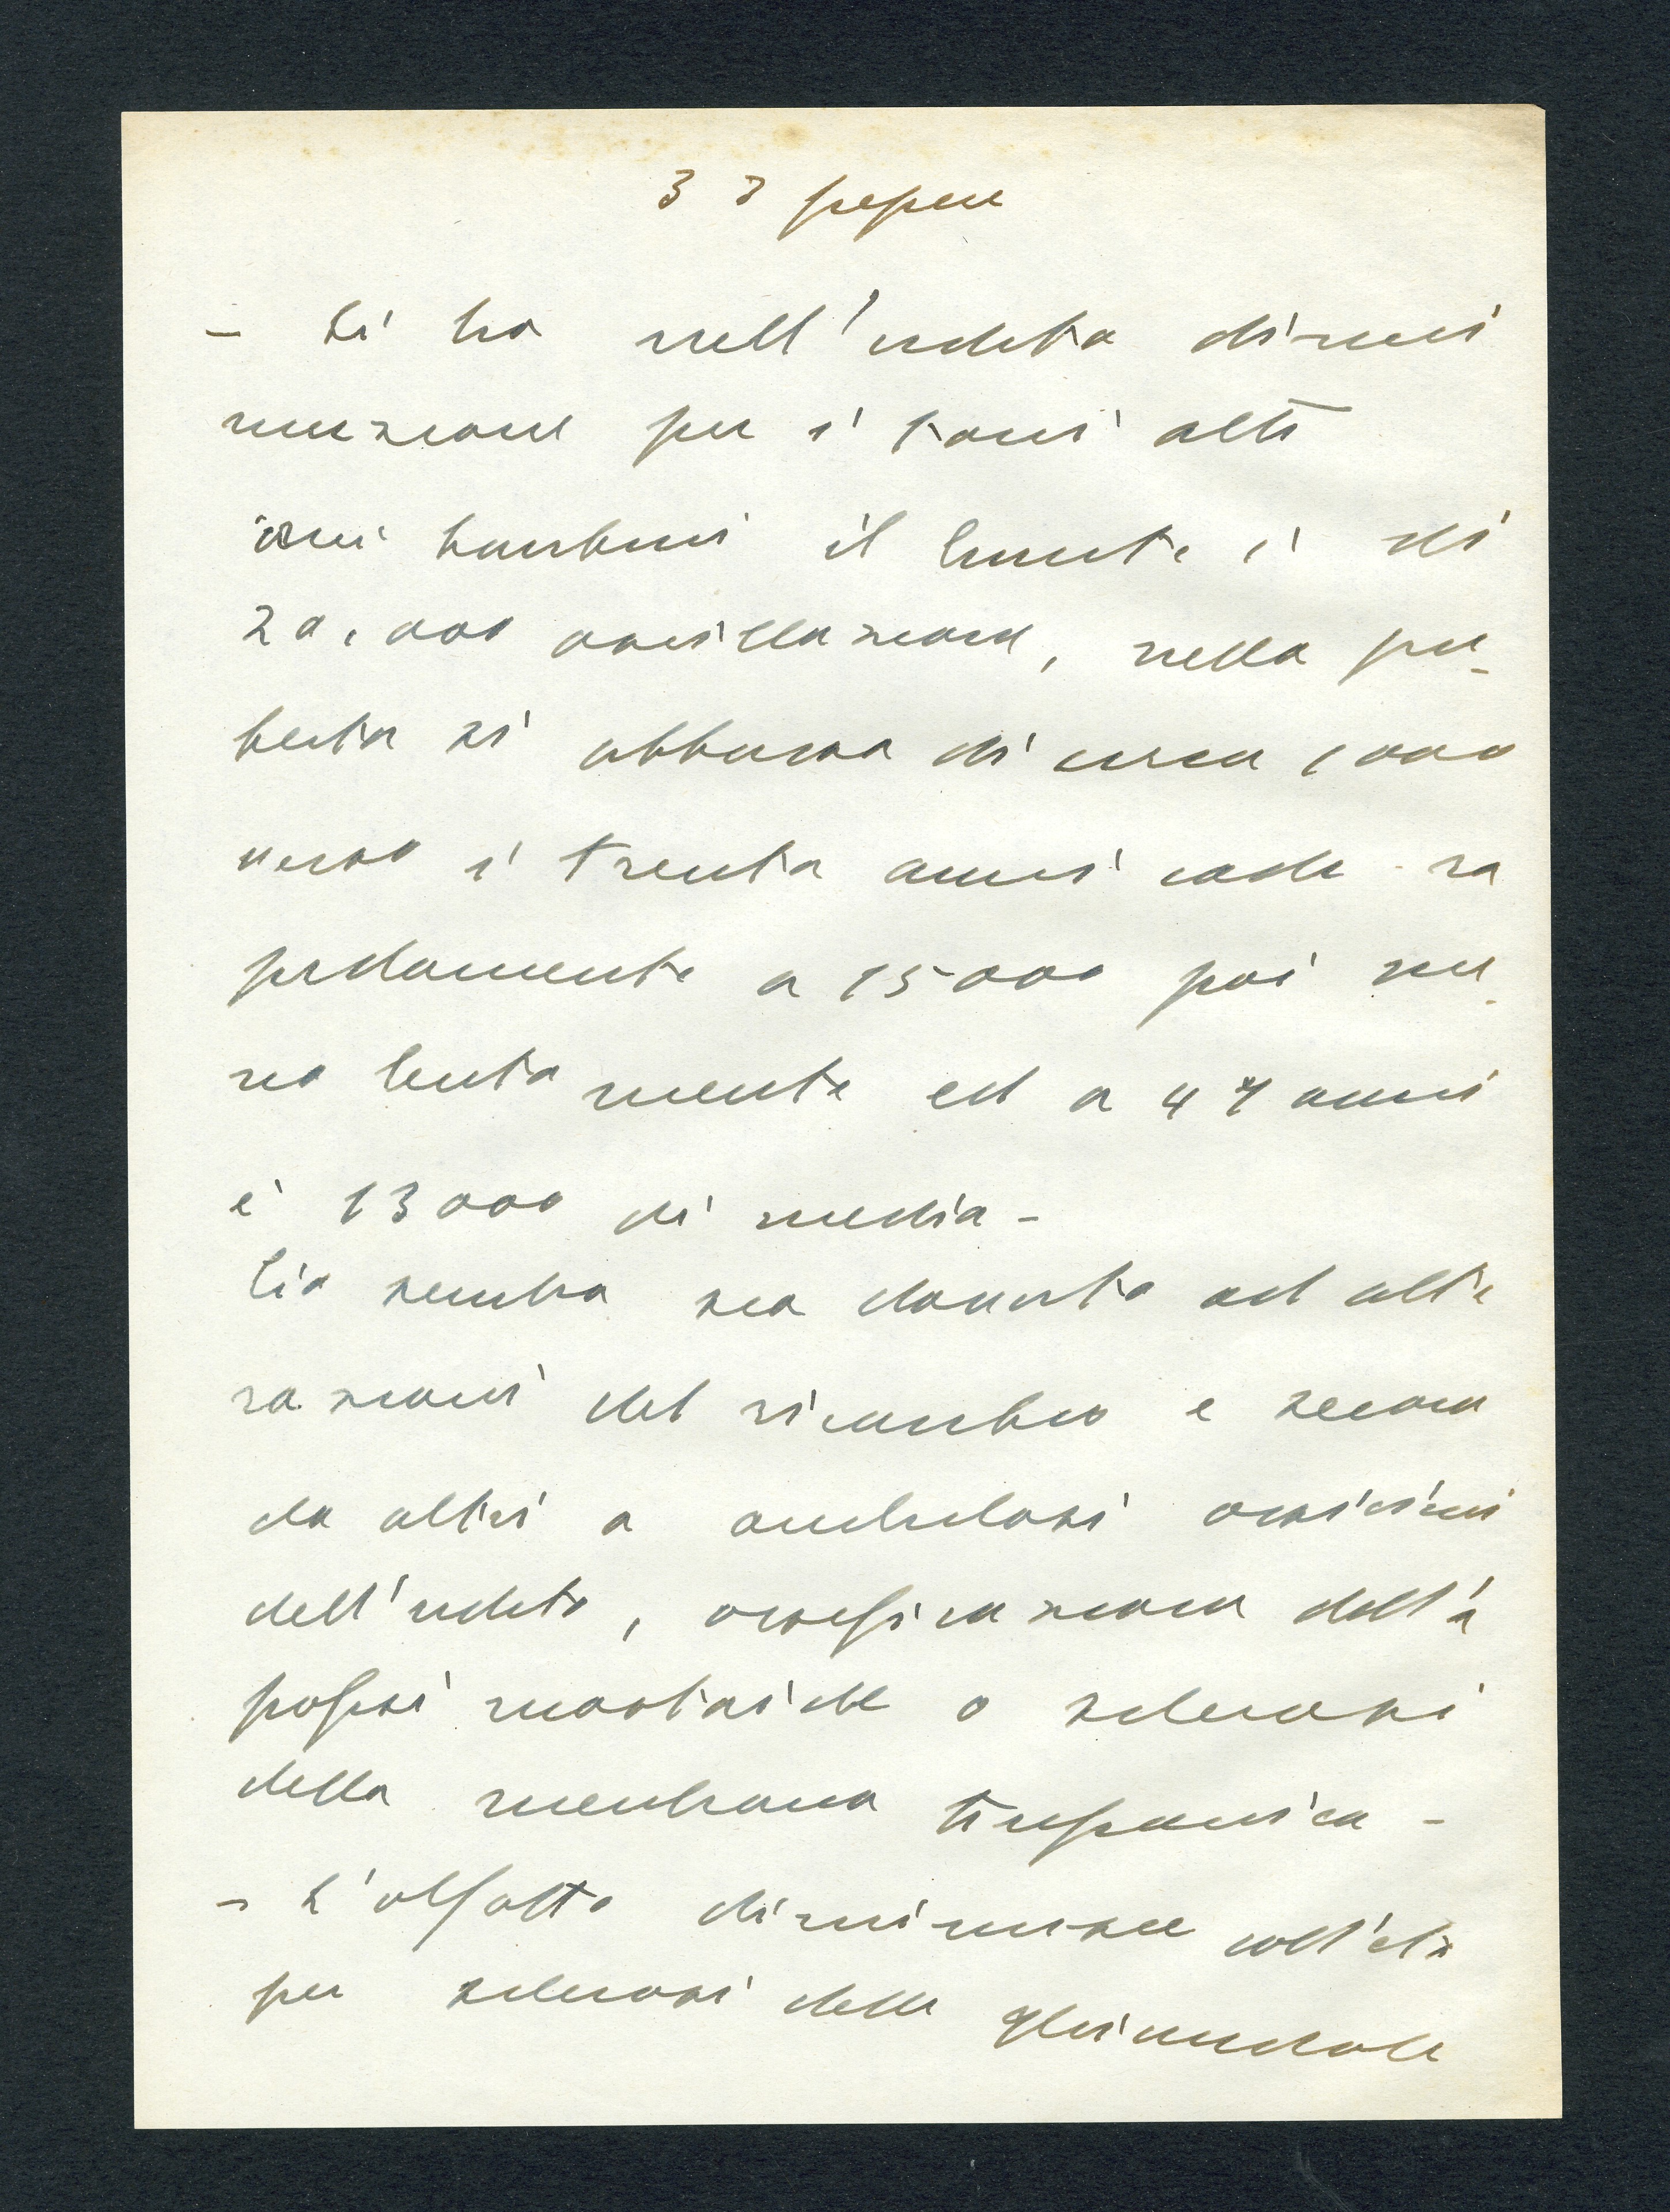 33
- Si ha nell'udito dimi
nuzione per i toni alti
nei bambini il limite è di
20.000 oscillazioni, nella pu-
bertà si abbassa di circa 1000
verso i trenta anni cade ra
pidamente a 15000 poi me-
no lentamente ed a 47 anni
è 13000 di media -
Ciò sembra sia dovuto ad alte
razioni del ricambio e secondo
da altri a anchilosi ossicini
dell'udito, ossificazione dell'a
pofisi mastoide o sclerosi
della membrana timpanica -
- L'olfatto diminuisce coll'età
per sclerosi delle ghiandole